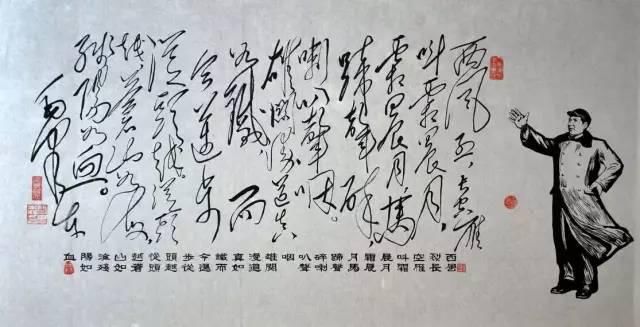 西风烈長空雁
叫霜晨月
霜晨月馬
蹄聲碎
喇叭聲咽
雄關漫道真
如鐵而
今邁步
從頭越從頭
越蒼山如海
殘陽如血。
毛澤東
西風
烈長
空雁
叫霜
晨月
霜晨
月馬
蹄聲
碎喇
叭聲
咽
雄關
漫道
真如
鐵而
今邁
步從
頭越
從頭
越蒼
山如
海殘
陽如
血